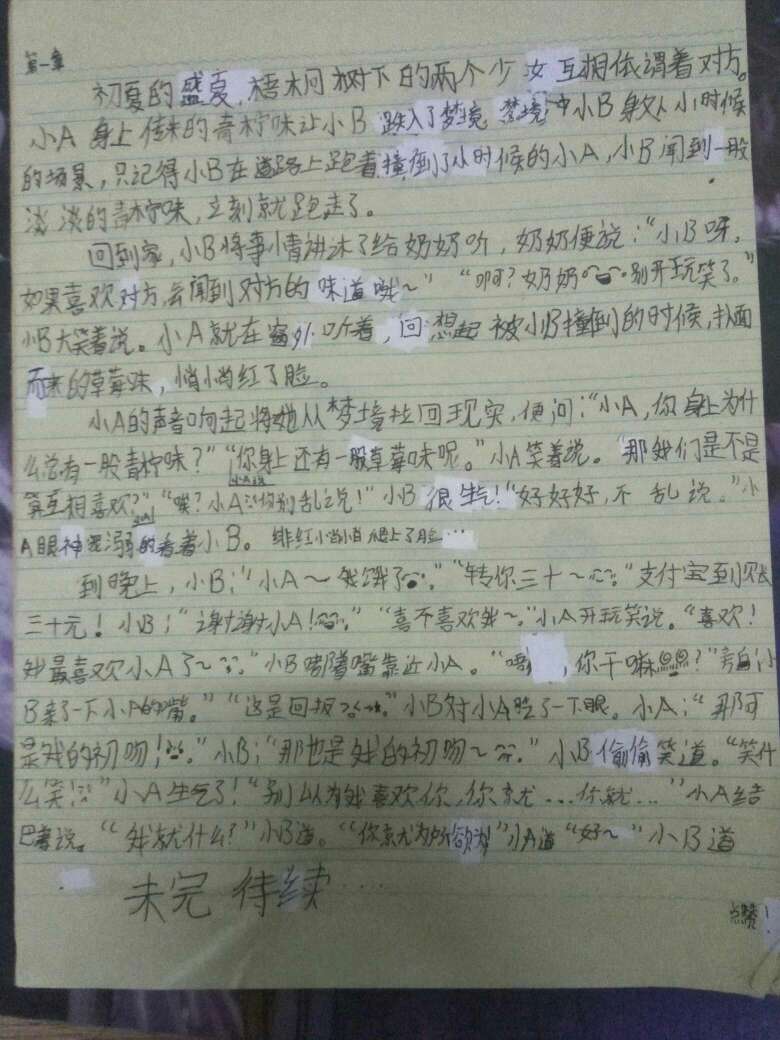 第一章
初夏的盛夏,梧桐树下的两个少女互相依谓着对方。
小A身上传来的青柠味让小B跌入了梦境 梦境中小B身处小时候
的场景,只记得小B在道路上跑着撞倒了小时候的小A,小B闻到一股
淡淡的青柠味,立刻就跑走了。
回到家,小B将事情讲述了给奶奶听,奶奶便说:“小B呀,
如果喜欢对方,会闻到对方的味道哦~”“啊?奶奶别开玩笑了。”
小B大笑着说。小A就在窗外听着,回想起被小B撞倒的时候,扑面
而来的草莓味,悄悄红了脸。
小A的声音响起将她从梦境拉回现实,便问:“小A,你身上为什
么总有一股青柠味?”“你身上还有一股草莓味呢。”小A笑着说。“那我们是不是
算互相喜欢?”“唉?小A你别乱说!”小B很生气!“好好好,不乱说。”小
A眼神宠溺的看着小B。绯红悄悄爬上了脸…
到晚上,小B:“小A~我饿了。”“转你三十~”“支付宝到账
三十元!小B:“谢谢小A!”“喜不喜欢我~”小A开玩笑说。“喜欢!
我最喜欢小A了~”小B嘟着嘴靠近小A。“唔,你干嘛?”旁白:小
B亲了一下小A的嘴。”“这是回报”小B对小A眨了一下眼。小A:“那可
是我的初吻!”小B:“那也是我的初吻~”小B偷偷笑道。“笑什
么笑!”小A生气了!“别以为我喜欢你,你就…你就…”小A结
巴着说。“我就什么?”小B道。“你就为所欲为!”小A道“好~”小B道
未完 待续……
点赞!